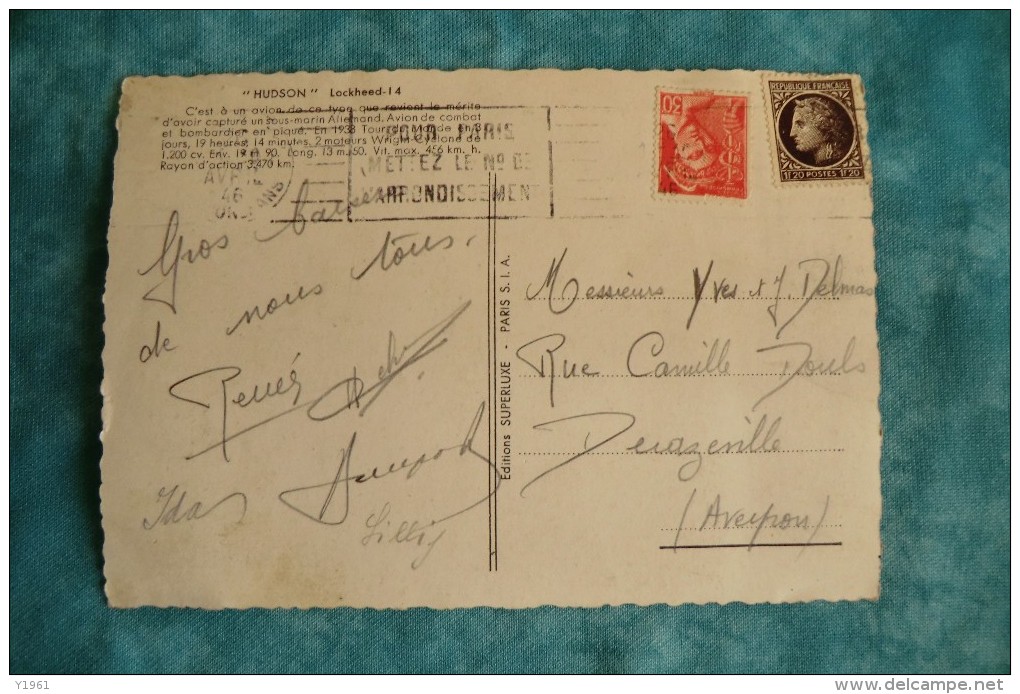 "HUDSON" Lockheed-14
C'est à un avion de ce type que revient le mérite
d'avoir capturé un sous-marin Allemand. Avion de combat
et bombardier en piqué. En 1938 Tour du Monde en 3
jours, 19 heures, 14 minutes. 2 moteurs Wright-Cyclone de
1.200 cv. Env. 19 m. 90. Long. 13 m. 50. Vit. max. 456 km. h.
Rayon d'action 3.470 km.
POUR PARIS
METTEZ LE No DE
L'ARRONDISSEMENT
AVR
46
50
REPUBLIQUE FRANCAISE
1F20 POSTES 1F20
Gros baisers
de nous tous.
René
Ida
Lilly
Editions SUPERLUXE - PARIS S.I.A.
Messieurs Yves et J. Delmas
Rue Camille Douls
Decazeville
(Aveyron)
Y1961
delcampe.net